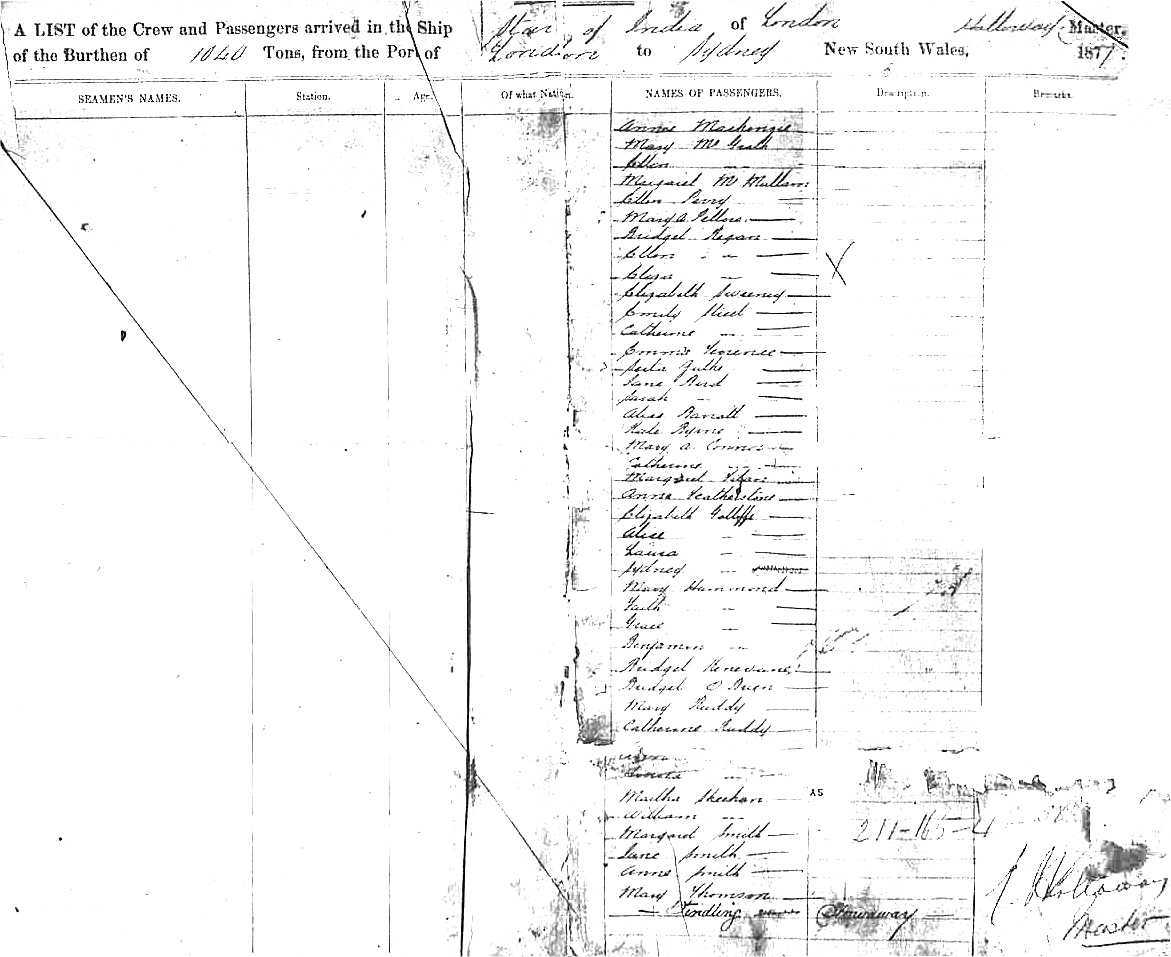 A LIST of the Crew and Passengers arrived in the Ship Star of India of London Holloway Master,
of the Burthen of 1040 Tons, from the Port of London to Sydney New South Wales, 1877.
SEAMEN'S NAMES. Station. Age. Of what Nation. NAMES OF PASSENGERS. Description. Remarks.
Annie Mackenzie
Mary McGrath
Ellen
Margaret McMullan
Ellen Perry
Mary A Pellow
Bridget Regan
Ellen " "
Eliza "
Elizabeth Sweeney
Emily Steel
Catherine "
Jane Bird
Sarah "
Alice Barratt
Kate Byrne
Mary A. Connor
Catherine "
Margaret
Annie Featherstone
Elizabeth
Alice "
Laura "
Sydney "
Mary Hammond
Faith "
Grace "
Benjamin "
Bridget
Bridget O'Brien
Mary Ruddy
Catherine Ruddy
Martha Sheehan AS
William " 211-165-4
Margaret Smith
Jane Smith
Anne Smith Holloway
Mary Thomson
Tindling Stowaway Master